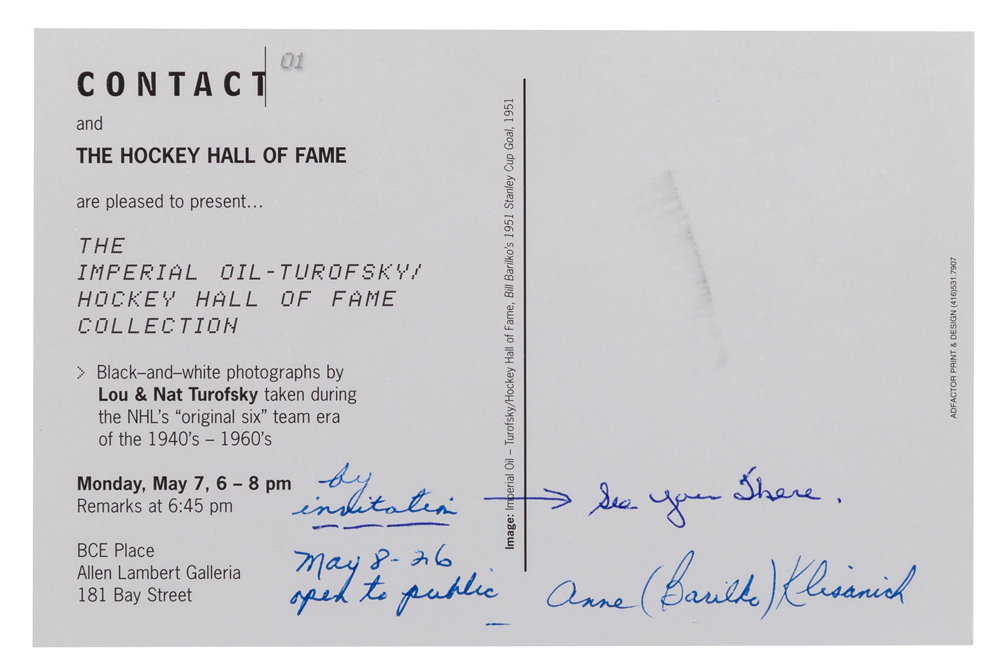 CONTACT 01
and
THE HOCKEY HALL OF FAME
are pleased to present...
THE
IMPERIAL OIL-TUROFSKY/
HOCKEY HALL OF FAME
COLLECTION
> Black–and–white photographs by
Lou & Nat Turofsky taken during
the NHL's “original six” team era
of the 1940's – 1960's
Monday, May 7, 6 – 8 pm
Remarks at 6:45 pm
by
invitation
BCE Place
Allen Lambert Galleria
181 Bay Street
May 8-26
open to public
Image: Imperial Oil – Turofsky/Hockey Hall of Fame, Bill Barilko's 1951 Stanley Cup Goal, 1951
→ See you There.
Anne (Barilko) Klisanich
ADFACTOR PRINT & DESIGN (416)531.7907